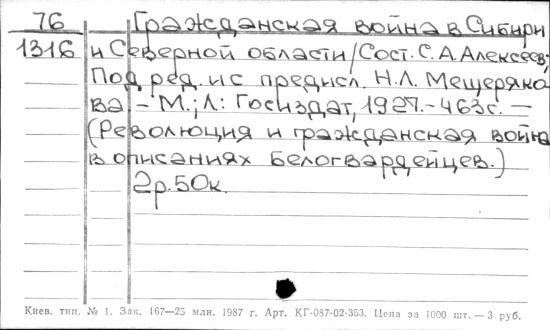 76 Гражданская война в Сибири
1316 и Северной области / Сост. С. А. Алексеев;
Под ред. и с предисл. Н. Л. Мещеряко
ва – М.; Л: Госиздат, 1927. – 463 с. —
(Революция и гражданская война
в описаниях белогвардейцев.)
2р. 50к.
Киев. тип. № 1. Зак. 167—25 млн. 1987 г. Арт. КГ-087-02-353. Цена за 1000 шт. — 3 руб.